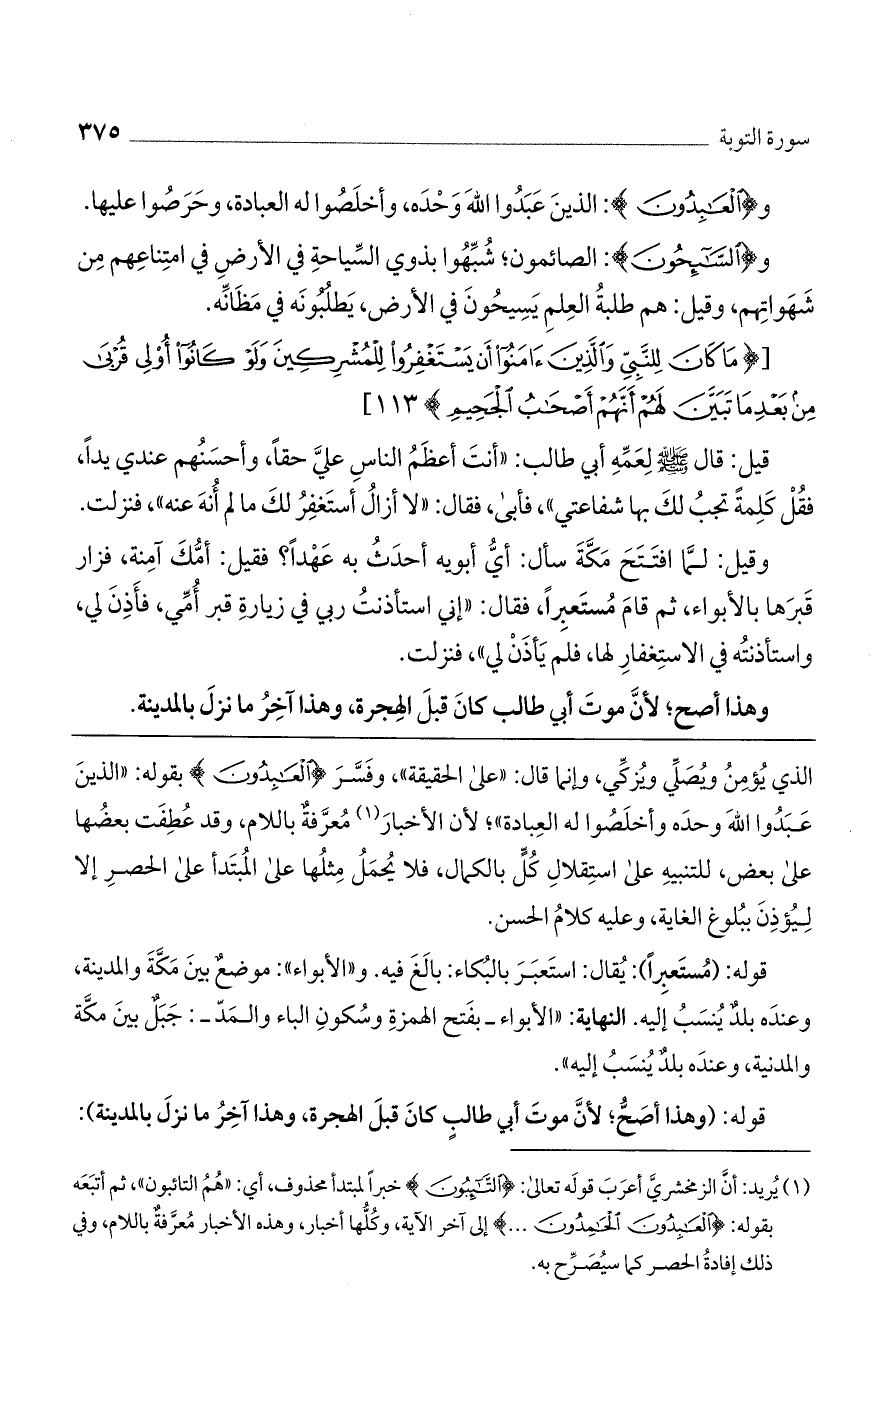 سورة التوبة ٣٧٥
و﴿ٱلْعَٰبِدُونَ﴾: الذينَ عَبَدُوا اللهَ وَحْدَه، وأخلَصُوا له العبادة، وحَرَصُوا عليها.
و﴿ٱلسَّٰٓئِحُونَ﴾: الصائمون؛ شُبِّهُوا بذوي السِّياحةِ في الأرضِ في امتِناعِهم مِن
شَهَواتِهم، وقيل: هم طلبةُ العِلمِ يَسِيحُونَ في الأرض، يَطلُبُونَه في مَظَانِّه.
[﴿مَا كَانَ لِلنَّبِيِّ وَٱلَّذِينَ ءَامَنُوٓا۟ أَن يَسْتَغْفِرُوا۟ لِلْمُشْرِكِينَ وَلَوْ كَانُوٓا۟ أُو۟لِى قُرْبَىٰ
مِنۢ بَعْدِ مَا تَبَيَّنَ لَهُمْ أَنَّهُمْ أَصْحَٰبُ ٱلْجَحِيمِ﴾ ١١٣]
قيل: قال ﷺ لِعَمِّهِ أبي طالب: «أنتَ أعظَمُ الناسِ عليَّ حقاً، وأحسَنُهم عندي يداً،
فقُلْ كَلِمةً تجبُ لكَ بها شفاعتي»، فأبىٰ، فقال: «لا أزالُ أستَغفِرُ لكَ ما لم أُنهَ عنه»، فنزلت.
وقيل: لـمَّا افتَـتَحَ مَكَّةَ سأل: أيُّ أبويه أحدَثُ به عَهْداً؟ فقيل: أمُّكَ آمِنة، فزار
قبرَها بالأبواء، ثم قامَ مُستَعبِراً، فقال: «إني استأذنتُ ربي في زيارةِ قبرِ أُمِّي، فأَذِنَ لي،
واستأذنتُه في الاستِغفارِ لها، فلم يَأذَنْ لي»، فنزلت.
وهذا أصح؛ لأنَّ موتَ أبي طالب كانَ قبلَ الهِجرة، وهذا آخِرُ ما نزلَ بالمدينة.
الذي يُؤمِنُ ويُصَلِّي ويُزكِّي، وإنما قال: «علىٰ الحقيقة»، وفَسَّرَ ﴿ٱلْعَٰبِدُونَ﴾ بقوله: «الذينَ
عَـبَدُوا اللهَ وحدَه وأخلَصُوا له العِبادة»؛ لأن الأخبارَ(١) مُعرَّفةٌ باللام، وقد عُطِفَت بعضُها
علىٰ بعض، للتنبيهِ علىٰ استِقلالِ كُلٍّ بالكمال، فلا يُحمَلُ مِثلُها علىٰ المُبتَدأ علىٰ الحصرِ إلا
لِـيُؤذِنَ ببُلوغِ الغاية، وعليه كلامُ الحسن.
قوله: (مُستَعبِراً): يُقال: استَعبَرَ بالبُكاء: بالَغَ فيه. و«الأبواء»: موضعٌ بينَ مَكَّةَ والمدينة،
وعندَه بلدٌ يُنسَبُ إليه. النهاية: «الأبواء ـ بفَتحِ الهمزةِ وسُكونِ الباء والـمَدّ ـ: جَبَلٌ بينَ مكَّة
والمدنية، وعندَه بلدٌ يُنسَبُ إليه».
قوله: (وهذا أصَحُّ؛ لأنَّ موتَ أبي طالبٍ كانَ قبلَ الهجرة، وهذا آخِرُ ما نزلَ بالمدينة):
(١) يُريد: أنَّ الزمخشريَّ أعرَبَ قولَه تعالىٰ: ﴿ٱلتَّٰٓئِبُونَ﴾ خبراً لمبتدأ محذوف، أي: «هُمُ التائبون»، ثم أتبَعَه
بقوله: ﴿ٱلْعَٰبِدُونَ ٱلْحَٰمِدُونَ ...﴾ إلى آخر الآية، وكُلُّها أخبار، وهذه الأخبار مُعرَّفةٌ باللام، وفي
ذلك إفادةُ الحصـر كما سيُصَـرِّح به.